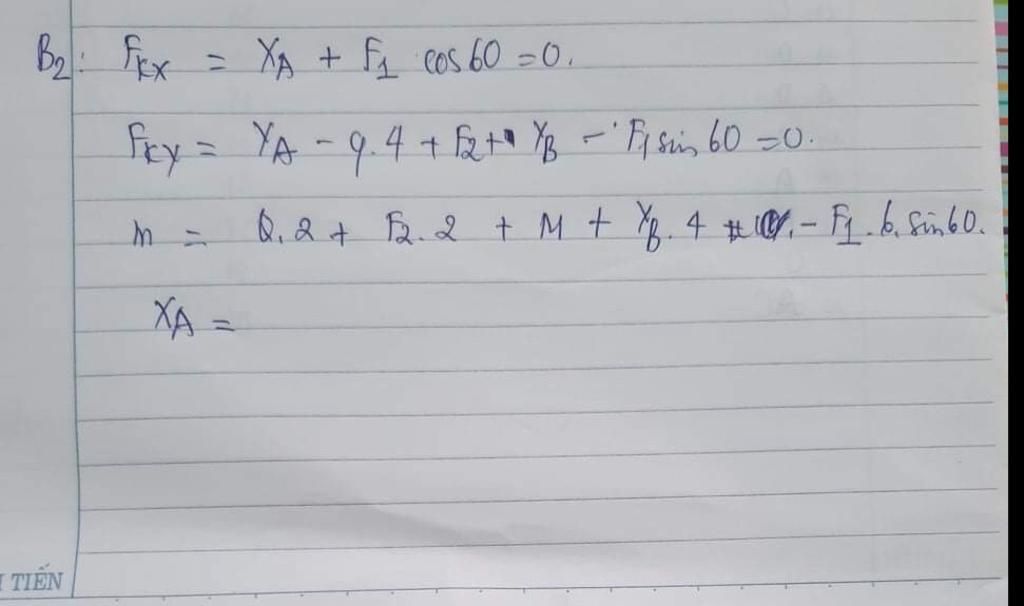 B2: Fkx = XA + F1 cos 60 = 0.
Fky = YA - q.4 + F2 + YB - F1 sin 60 = 0.
m = Q.2 + F2.2 + M + YB.4 - F1.6.sin 60.
XA =
TIẾN